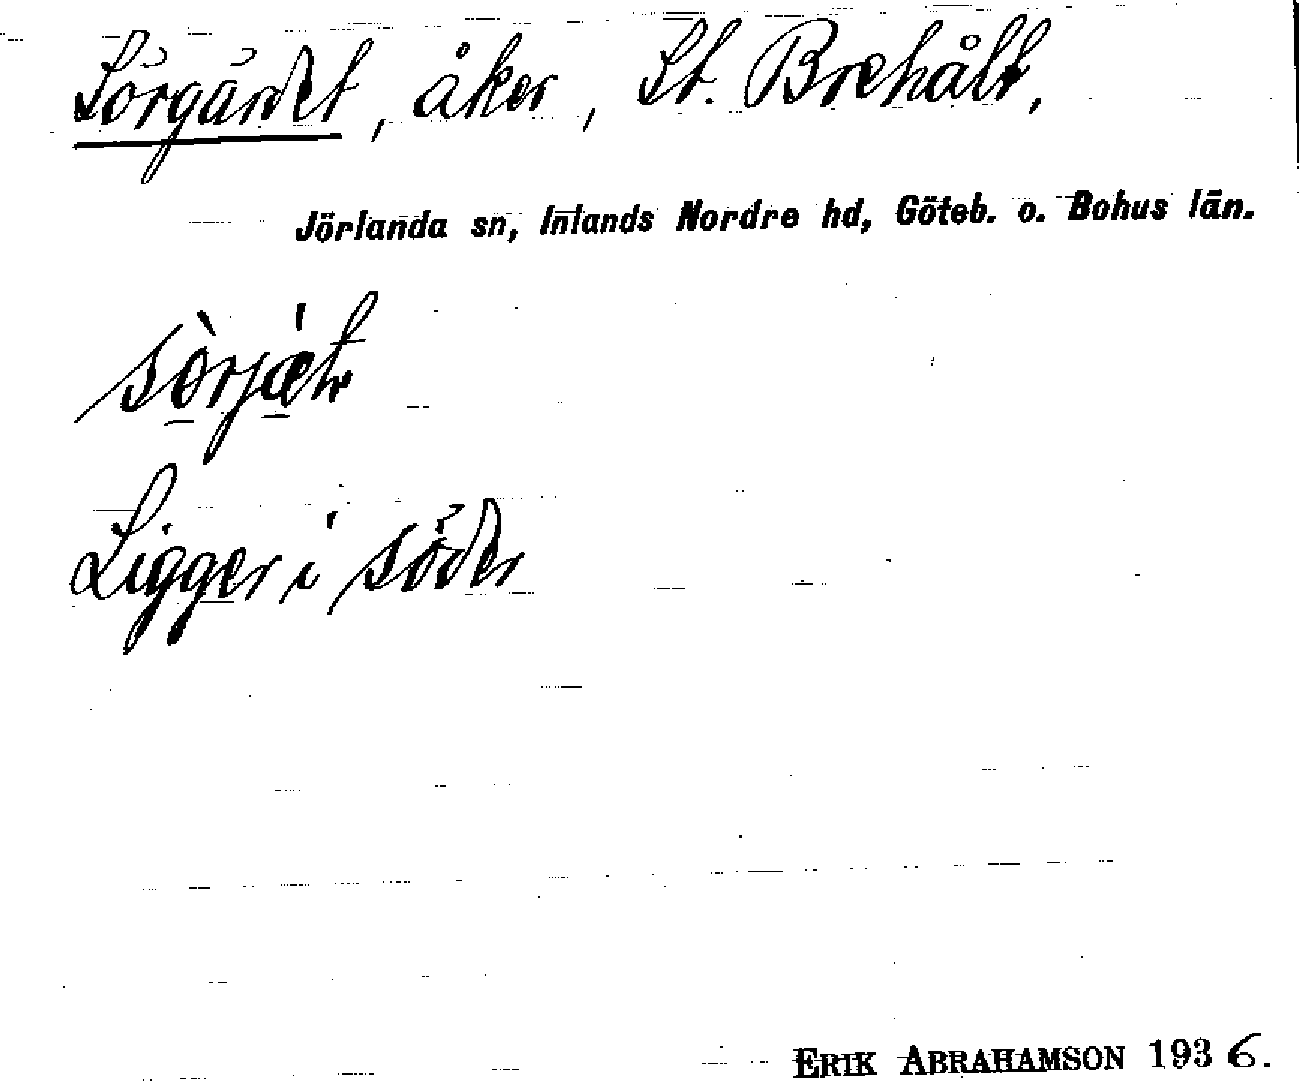 Sörgärdet, åker, St. Brehålt,
Jörlanda sn, Inlands Nordre hd, Göteb. o. Bohus län.
sòrjæ̀t
Ligger i söder
ERIK ABRAHAMSON 1936.